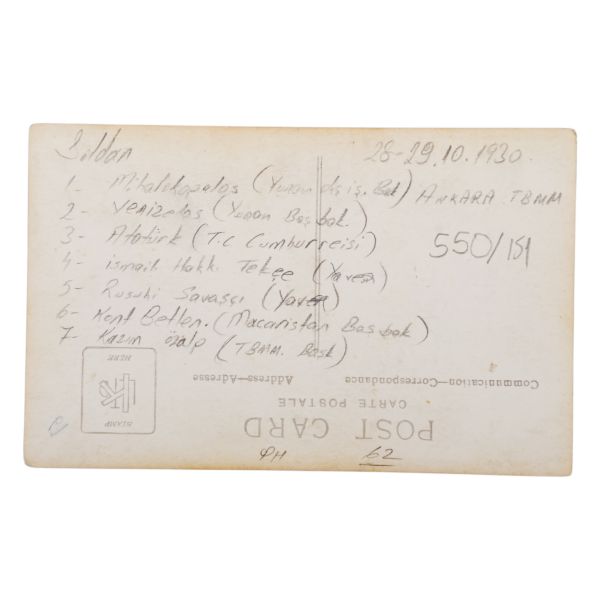 Soldan 28-29.10.1930
1- Mihalokopolos (Yunan dış iş. Bak) ANKARA TBMM
2- Venizelos (Yunan Başbak.)
3- Atatürk (T.C Cumhurreisi)
4- ismail Hakkı Tekçe (Yaver)
5- Rusuhi Savaşçı (Yaver)
6- Kont Betlen. (Macaristan Başbak)
7- Kazım özalp (TBMM. Başk)
550/151
Communication—Correspondance
Address—Adresse
CARTE POSTALE
POST CARD
STAMP
HERE
PH 62